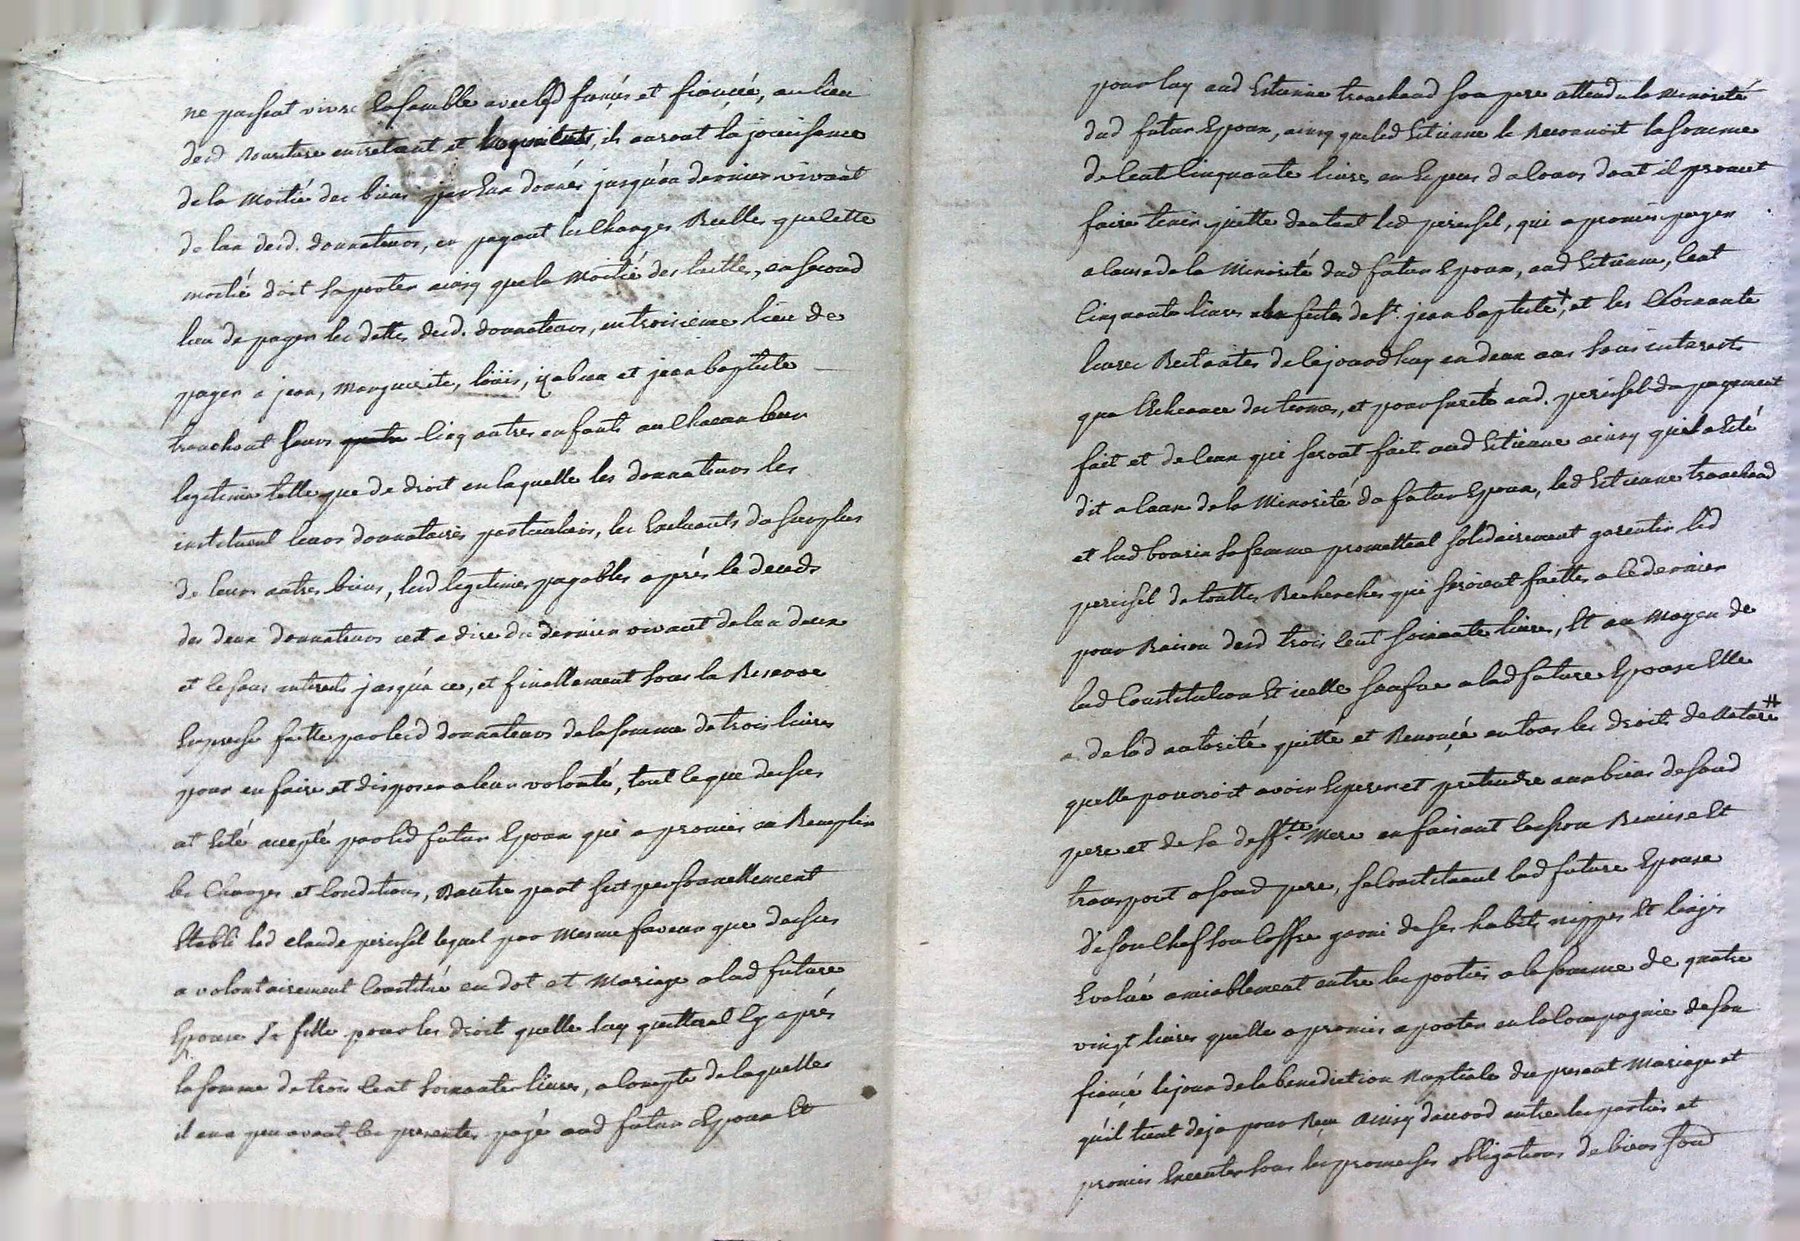 ne pussent vivre Ensemble avec lesd fiancés et fiancée, au lieu
desd Nouriture entretient et logements, ils auront la jouissance
de la Moitié des biens par Eux donnés jusqu'au dernier vivant
de l'un desd. donnateurs, en payant les Charges Reelles que cette
moitié doit suporter ainsy que la Moitié des tailles, en second
lieu de payer les dettes desd. donnateurs, en troisieme lieu de
payer a jean, Marguerite, loüis, izabeau et jean baptiste
tronchont leurs cinq autres enfants au Chacun leur
legitime telle que de droit en laquelle les donnateurs les
instituent leurs donnataires particuliers, les Excluants du surplus
de leurs autres biens, lesd legitimes payables aprés le deceds
des deux donnateurs cest a dire du dernier vivant delun deux
et ce sans interests jusqu'a ce, et finallement sous la Reserve
Expresse faitte par lesd donnateurs de la somme de trois livres
pour en faire et disposer a leur volonté, tout ce que dessus
at Eté accepté par led futur Epoux qui a promis en Remplir
les Charges et Conditions, Dautre part s'est personnellement
Etabli led Claude perissel lequel par Mesme faveur que dessus
a volontairement Constitué en dot et Mariage a lad future
Epouse Sa fille pour les droit quelle luy quittera Cy aprés
la somme de trois Cent soixante livres, a Compte de laquelle
il en a peu avant les presentes payé aud futur Epoux Et
pour luy aud Estienne tronchaud son pere attendu la Minorité
dud futur Epoux, ainsy que led Estienne le Reconnoit la somme
de Cent Cinquante livres en Especes de Cours dont il promet
faire tenir quitte d'autant led perissel, qui a promis payer
a Cause de la Minorité dud futur Epoux, aud Estienne, Cent
Cinquante livres a la feste de St. jean baptiste +, et les Soixante
livres Restantes de Ce jourd'huy en deux ans sans interests
que l'Echeance des termes, et pour sureté aud. perissel du payement
fait et de Ceux qui seront faits aud Estienne ainsy quil a Eté
dit a Cause de la Minorité du futur Epoux, led Estienne tronchaud
et lad bourin sa femme promettent solidairement garentir led
perissel de touttes Recherches qui seroient faittes a Ce dernier
pour Raison desd trois Cent soixante livres, Et au Moyen de
lad Constitution Et icelle sauve a lad future Epouse Elle
a de lad autorité quitté et Renoncé en tous les droits de Nature #
quelle pouvoit avoir Esperer et pretendre aux biens de sond
pere et de sa deffte. Mere en faisant Cession Remise Et
transport a sond pere, se Constituant lad future Epouse
de son Chef son Coffre garni de ses habits nippes Et linges
Evalué amiablement entre les parties a la somme de quatre
vingt livres quelle a promis aporter en la Compagnie de son
fiancé le jour de la benediction Nuptiale du present Mariage et
qu'il tient deja pour Reçu Ainsy d'accord entre les parties et
promis Executer sous les promesses obligations de biens sous